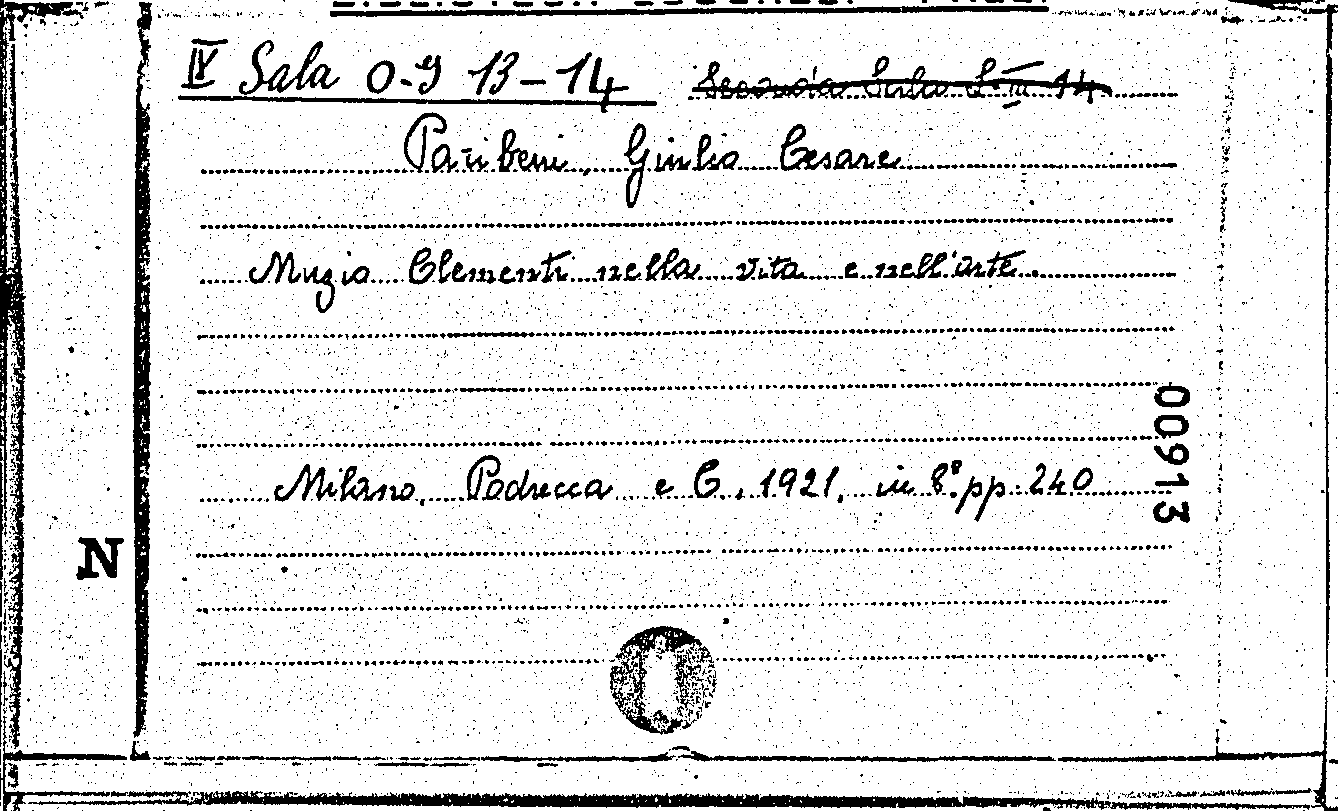 IV Sala O-g 13-14
Paribeni, Giulio Cesare
Muzio Clementi nella vita e nell'arte.
Milano, Podrecca e C., 1921, in 8° pp. 240
00913
N